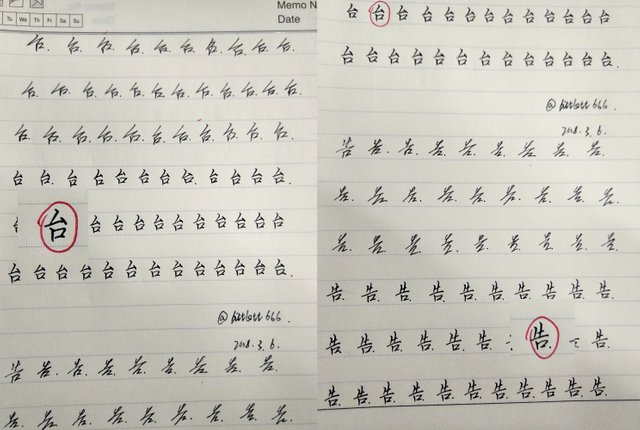 Memo N
Date
Tu We Th Fr Sa Su
台. 台. 台. 台. 台. 台. 台. 台. 台. 台.
台. 台. 台. 台. 台. 台. 台. 台. 台. 台. 台.
台. 台. 台. 台. 台. 台. 台. 台. 台. 台. 台.
台 台 台 台 台 台 台 台 台 台 台 台.
台 台 台 台 台 台 台 台 台 台
台 台 台 台 台 台 台 台 台 台 台 台.
666.
2018.3.6.
告. 告. 告. 告. 告. 告. 告. 告. 告.
告. 告. 告. 告. 告. 告. 告. 告. 告.
台 台 台 台 台 台 台 台 台 台 台 台
台 台 台 台 台 台 台 台 台 台 台 台.
666
2018.3.6.
告. 告. 告. 告. 告. 告. 告. 告. 告.
告. 告. 告. 告. 告. 告. 告. 告. 告.
告. 告. 告. 告. 告. 告. 告. 告. 告.
告. 告. 告. 告. 告. 告. 告. 告. 告.
告. 告. 告. 告. 告. 告. 告. 告.
告. 告. 告. 告. 告. 告. 告. 告. 告. 告. 告.